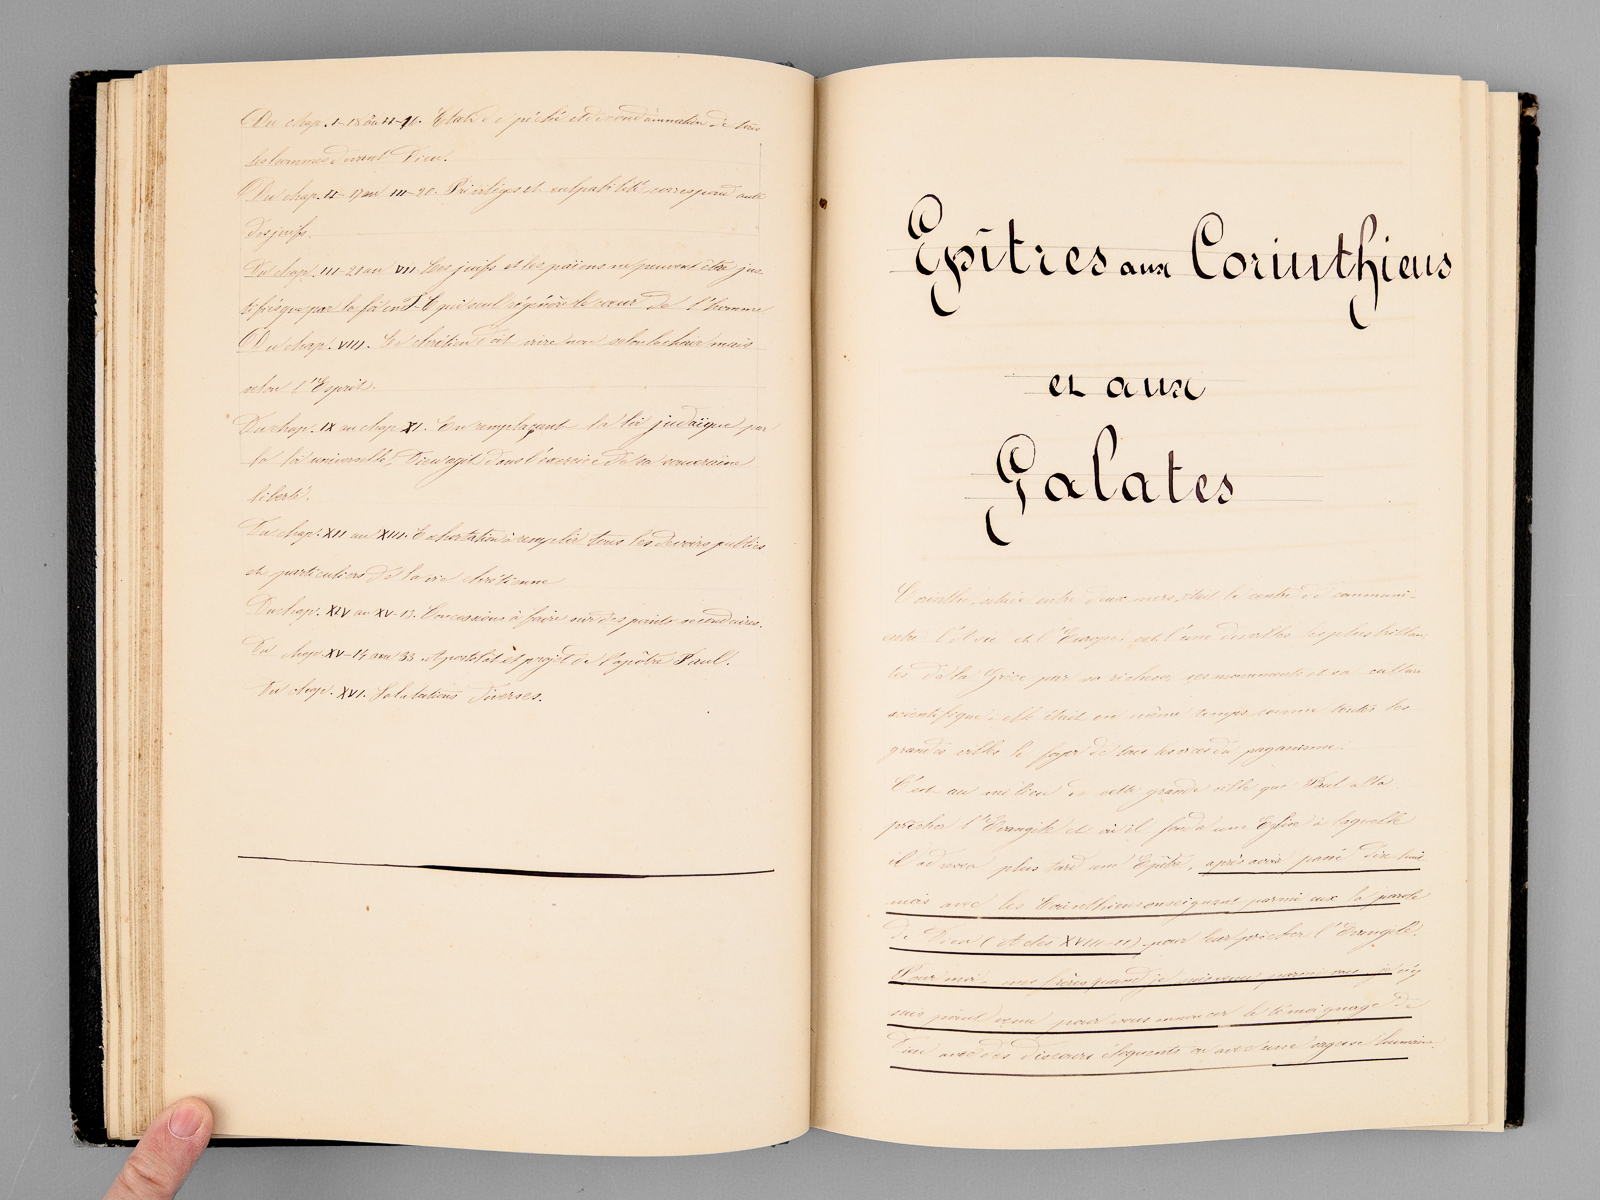 Du chap. I-18 au II-16. Etat de péché et de condamnation de tous
les hommes devant Dieu.
Du chap. II-17 au III-20. Privilèges et culpabilité correspondante
des juifs.
Du chap. III-21 au VII. Les juifs et les païens ne peuvent être jus
tifiés que par la foi en J-C qui seul régénère le cœur de l'homme
Du chap. VIII. Le chrétien doit vivre non selon la chair mais
selon l'Esprit.
Du chap. IX au chap XI. En remplaçant la loi judaïque par
la loi universelle, Dieu agit dans l'exercice de sa souveraine
liberté.
Du chap. XII au XIII. Exhortation à remplir tous les devoirs publics
et particuliers de la vie chrétienne
Du chap. XIV au XV-13. Concessions à faire sur des points secondaires.
Du chap. XV-14 au 33. Apostolat et projet de l'apôtre Paul.
Du chap. XVI. Salutations diverses.
Epîtres aux Corinthiens
et aux
Galates
Corinthe, située entre deux mers, était le centre de communi-
entre l'Asie et l'Europe, est l'une des villes les plus brillan
tes de la Grèce par sa richesse ses monuments et sa culture
scientifique; elle était en même temps comme toutes les
grandes villes le foyer de tous les vices du paganisme.
C'est au milieu de cette grande ville que Paul alla
prêcher l'Evangile et où il fonda une Eglise à laquelle
il adressa plus tard une Epître, après avoir passé dix-huit
mois avec les Corinthiens enseignant parmi eux la parole
de Dieu (Actes XVIII-11) pour leur prêcher l'Evangile.
Pour moi, mes frères quand je suis venu parmi vous je n'y
suis point venu pour vous annoncer le témoignage de
Dieu avec des discours éloquents ou avec une sagesse humaine